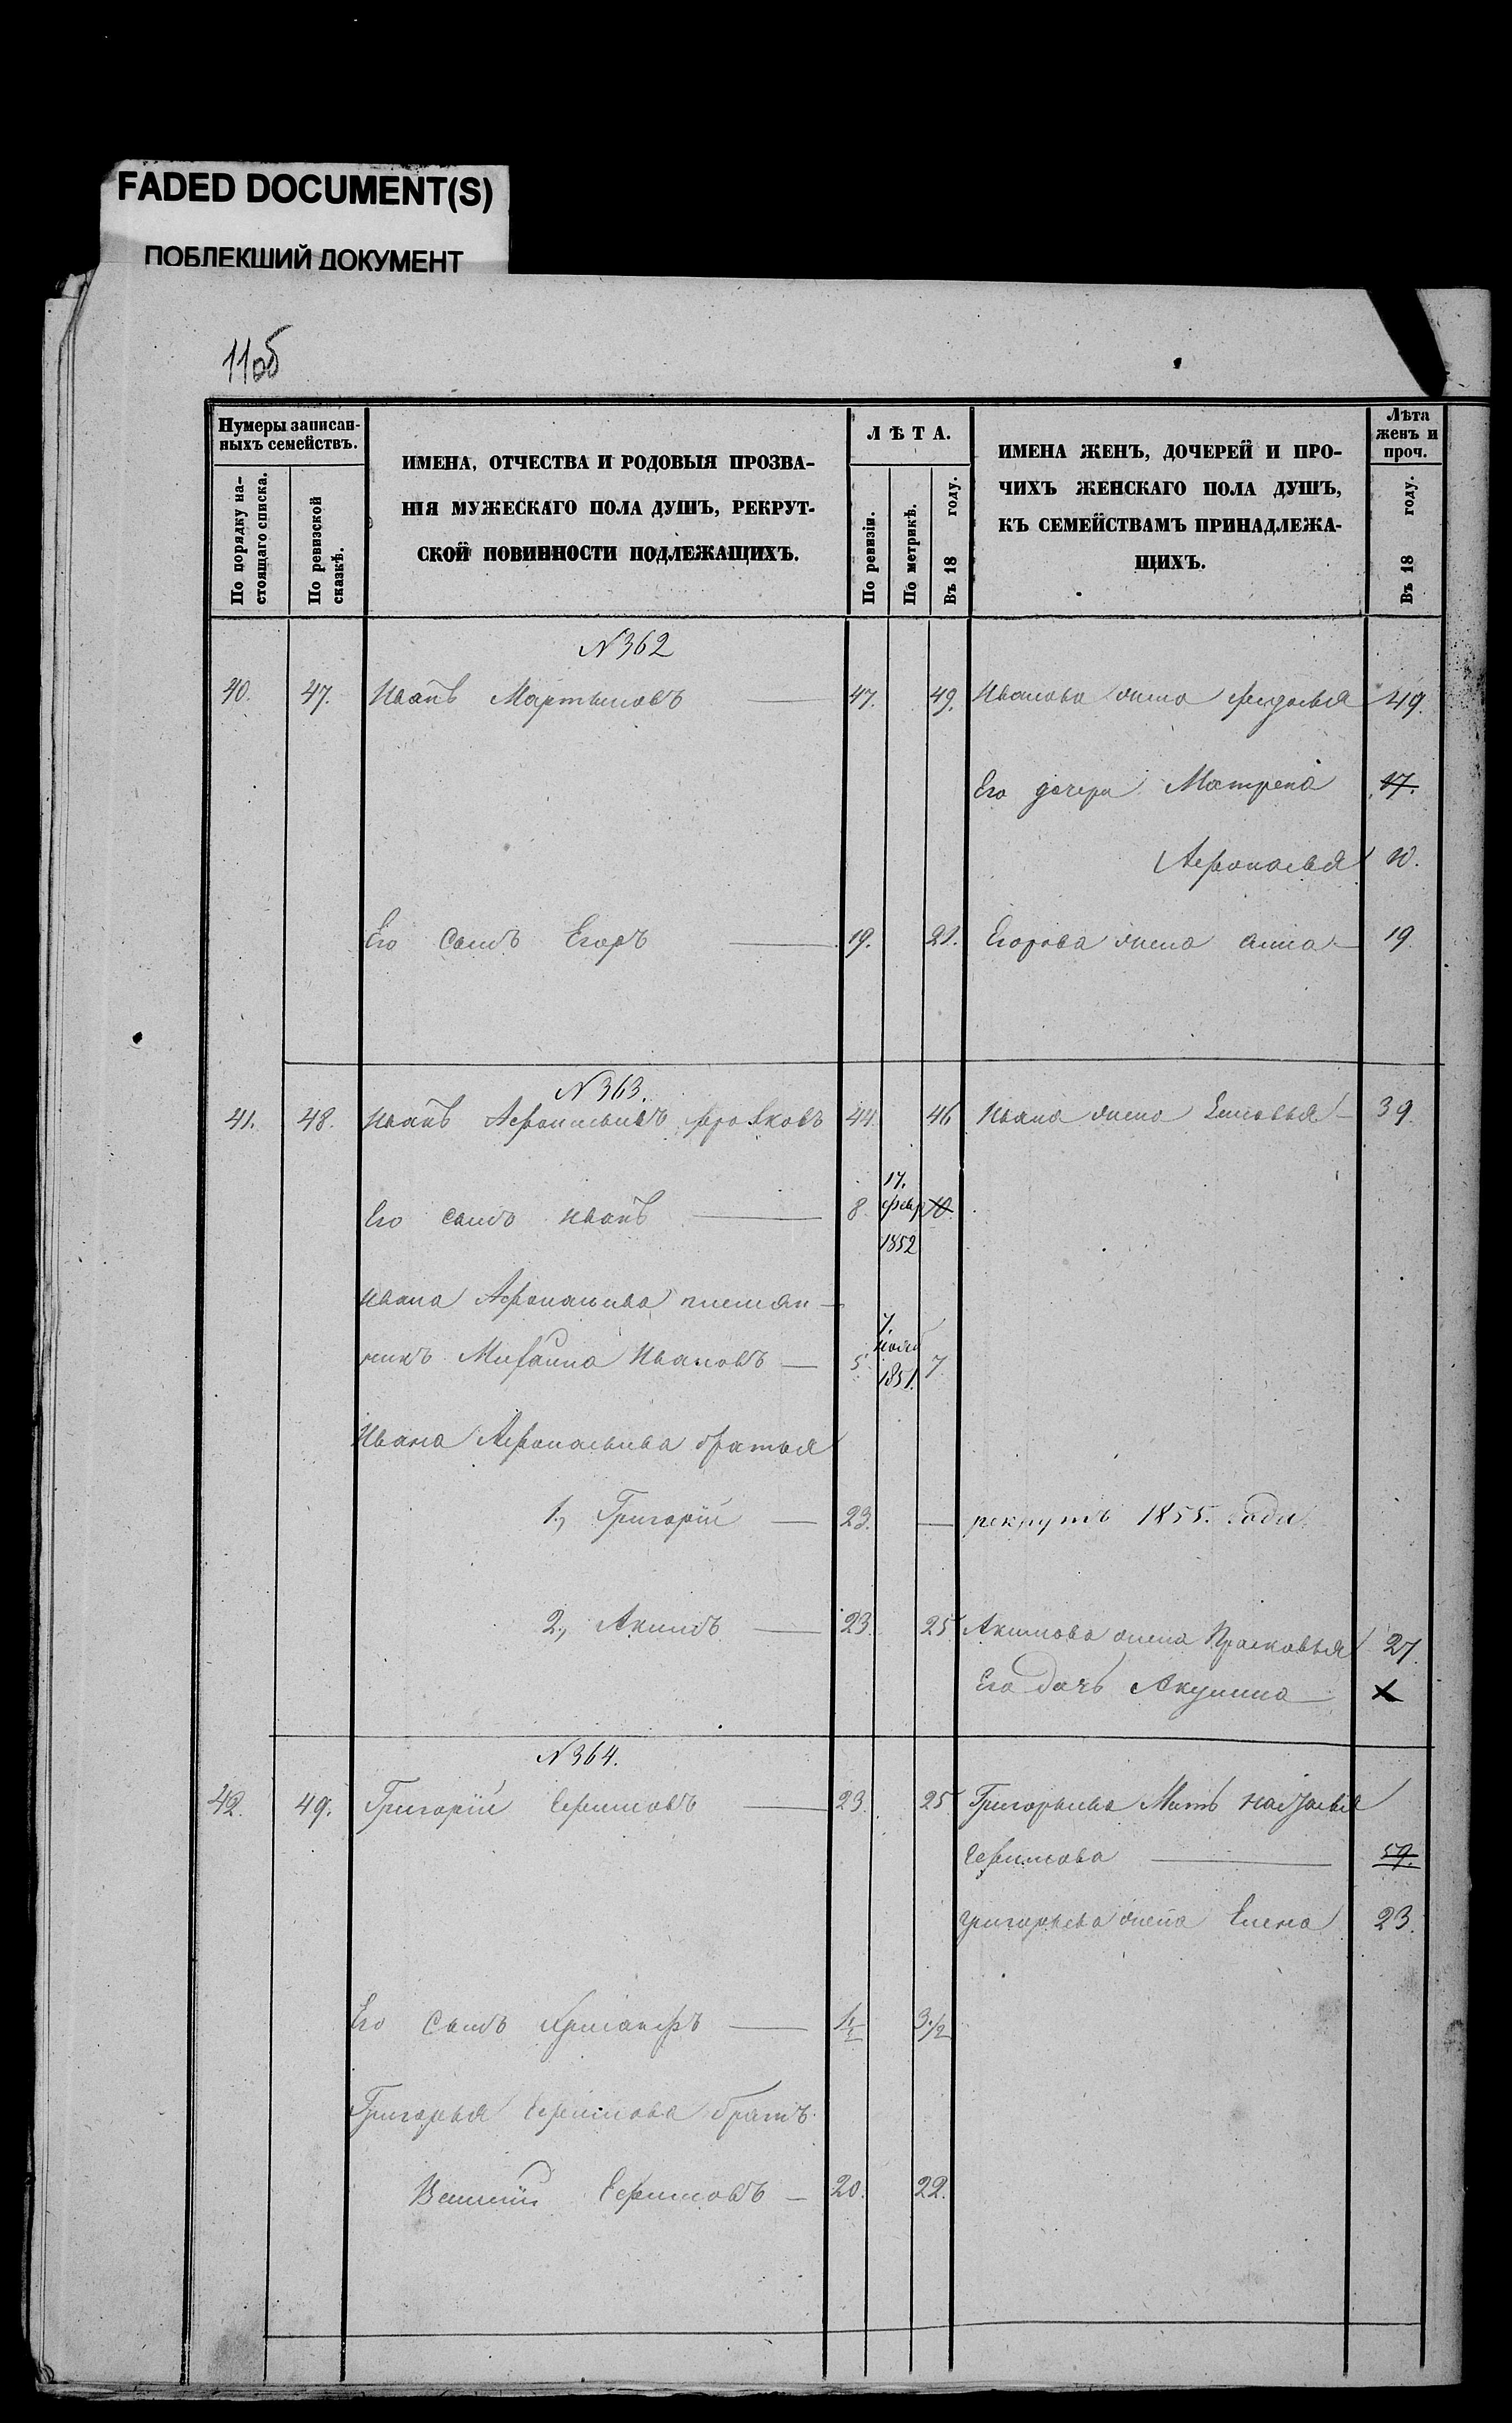 FADED DOCUMENT(S)
ПОБЛЕКШИЙ ДОКУМЕНТ
11об
Нумеры записан-
ныхъ семействъ.
По порядку на-
стоящаго списка.
По ревизской
сказкѣ.
ИМЕНА, ОТЧЕСТВА И РОДОВЫЯ ПРОЗВА-
НІЯ МУЖЕСКАГО ПОЛА ДУШЪ, РЕКРУТ-
СКОЙ ПОВИННОСТИ ПОДЛЕЖАЩИХЪ.
ЛѢТА.
По ревизіи.
По метрикѣ.
Въ 18 году.
ИМЕНА ЖЕНЪ, ДОЧЕРЕЙ И ПРО-
ЧИХЪ ЖЕНСКАГО ПОЛА ДУШЪ,
КЪ СЕМЕЙСТВАМЪ ПРИНАДЛЕЖА-
ЩИХЪ.
Лѣта
женъ и
проч.
Въ 18 году.
N 362
40. 47. Иванъ Мартыновъ — 47. 49. Иванова жена Федосья 49.
Его дочери Матрена 17.
Афанасья 10.
Его сынъ Егоръ — 19. 21. Егорова жена анна — 19
N 363.
41. 48. Иванъ Афанасьевъ 44. 46 Ивана жена — 39.
17.
Его сынъ иванъ — 8. февр 10.
1852
Ивана Афанасьева племян-
7.
никъ Михаила Ивановъ — 5. нояб 7
1851.
Ивана Афанасьева братья
1., Григорій — 23. — рекрутъ 1855. года
2., Акимъ — 23. 25. Акимова жена Прасковья 27.
Его дочь Акулина — X
N 364.
42. 49. Григорій Ефимовъ — 23. 25. Григорьева Мать Настасья
Ефимова — 59.
григорьева жена Елена 23.
Его сынъ — 1 1/2 3 1/2
Григорья Ефимова братъ
Василій Ефимовъ — 20. 22.